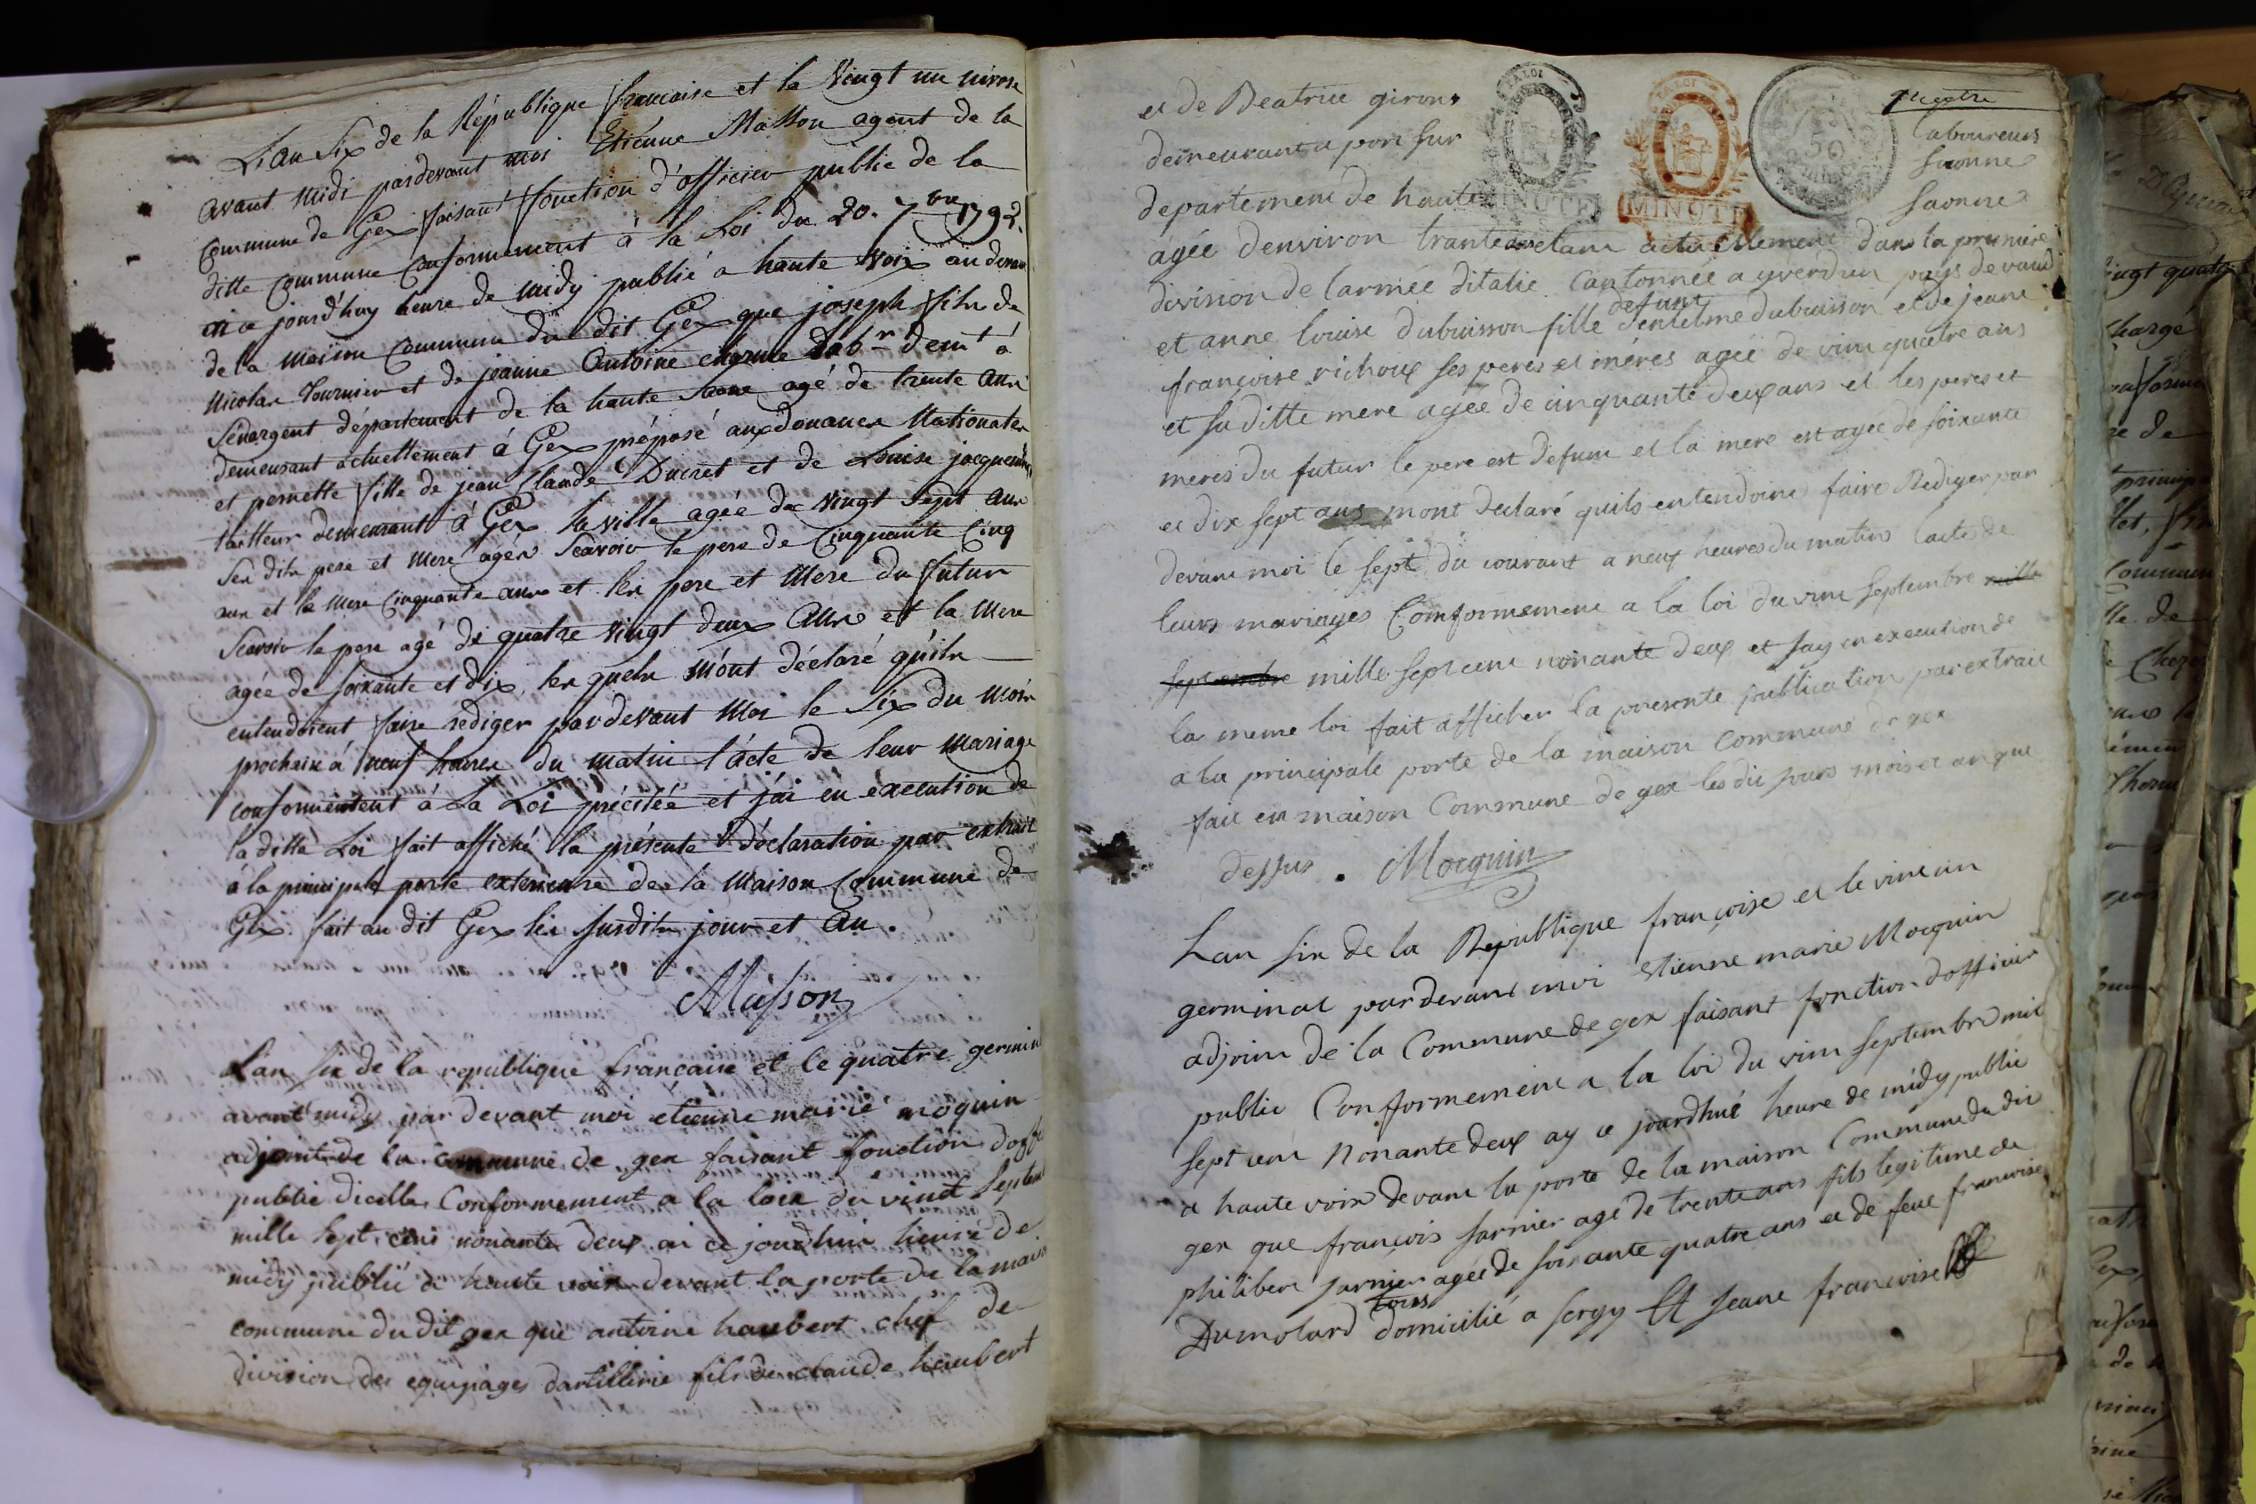 L'an Six de la République française et le Vingt un nivose
avant midi pardevant moi Etienne Masson agent de la
Commune de Gex faisant fonction d'officier public de la
ditte Commune Conformément à la Loi du 20. 7bre 1792.
ai ce jourd'huy heure de midy publié a haute Voix au devant
de la maison Commune du dit Gex que joseph fils de
Nicolas Tournier et de jeanne Antoine labr demt à
Senargent département de la haute Saone agé de trente Ans
demeurant actuellement à Gex préposé aux douanes Nationales
et pernette fille de jean Claude Ducret et de Louise
tailleur demeurant à Gex la ville agée de Vingt Sept Ans
Ses dits pere et Mere agés Scavoir le pere de Cinquante Cinq
ans et la Mere Cinquante ans et les pere et Mere du futur
Scavoir le pere agé de quatre Vingt deux Ans et la Mere
agée de Soixante et dix, les quels m'ont déclaré qu'ils
entendoient faire rediger pardevant Moi le Six du Mois
prochain à neuf heures du matin l'acte de leur Mariage
conformément à la Loi précitée et j'ai en execution de
la ditte Loi fait affiché la présente déclaration par extrait
à la principale porte exterieure de la Maison Commune de
Gex fait au dit Gex les susdits jour et An.
Masson
Lan six de la republique française et le quatre germin
avant midy par devant moi etienne marie moquin
adjoint de la commune de gex faisant fonction doffi
public dicelle Conformement a la loix du vingt Septem
mille sept cens nonante deux ai ce jourdhui heure de
midy publié a haute voix devant la porte de la maiso
commune du dit gex que antoine haubert chef de
division des equipages dartillerie fils de claude haubert
et de Beatrice giron
laboureurs
demeurant a port sur
saonne
departement de haute
saonne
agée denviron trante ans etant actuellement dans la premiere
division de larmée ditalie Cantonnée a yverdun pays de vaud
et anne louise dubuisson fille defunt dentelme dubuisson et de jeane
françoise richoux ses peres et méres agée de vint quatre ans
et sa ditte mere agée de cinquante deux ans et les peres et
meres du futur le pere est defunt et la mere est agée de soixante
et dix sept ans mont declaré quils entendoint faire Rediger par
devant moi le sept du courant a neuf heures du matin lacte de
leurs mariages Comformement a la loi du vint septembre mille
septembre mille sept cent nonante deux et jay en execution de
la meme loi fait afficher la presente publication par extrait
a la principale porte de la maison Commune de gex
fait en maison Commune de gex les dit jours mois et an que
dessus. Mocquin
Lan six de la Republique françoise et le vint un
germinal pardevant moi Etienne marie Mocquin
adjoint de la Commune de gex faisant fonction dofficier
public Conformement a la loi du vint septembre mil
sept cent nonante deux ay ce jourdhui heure de midy publié
a haute voix devant la porte de la maison Commune du dit
gex que françois jarnier agé de trente ans fils legitime de
philibert jarnier agée de soixante quatre ans et de feue francoise
Dumolard tous domicilié a sergy Et jeane francoise
LA LOI
MINUTE
LA LOI
MINUTE
50